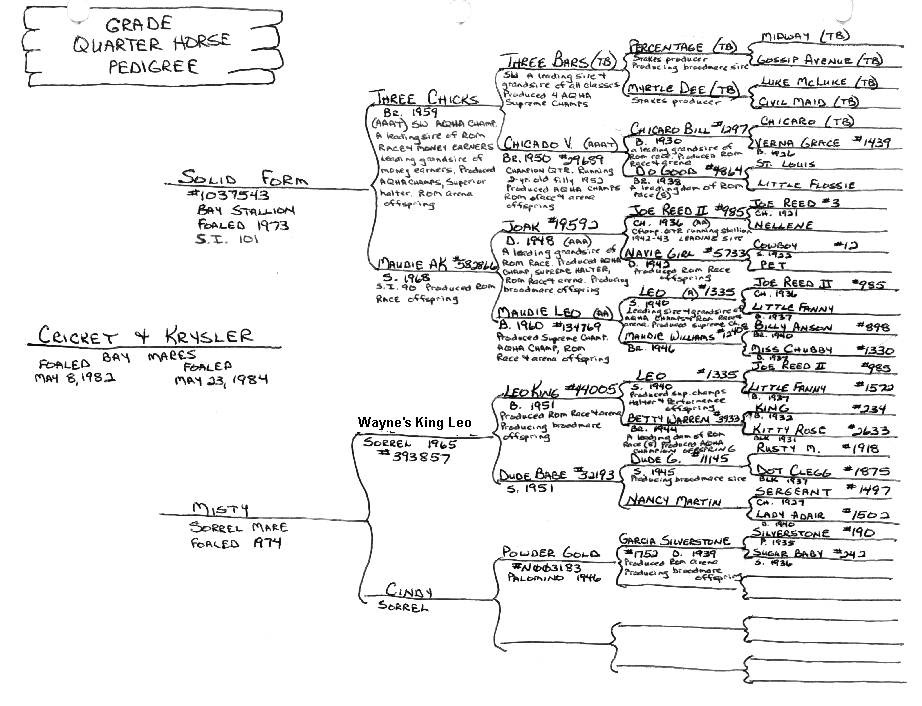 GRADE
QUARTER HORSE
PEDIGREE
CRICKET & KRYSLER
FOALED BAY MARES FOALED
MAY 8, 1982 MAY 23, 1984
SOLID FORM
#1037543
BAY STALLION
FOALED 1973
S.I. 101
MISTY
SORREL MARE
FOALED 1974
THREE CHICKS
BR. 1959
(AAAT) SW AQHA CHAMP.
A leading sire of ROM
RACE & MONEY EARNERS
Leading grandsire of
money earners. Produced
AQHA CHAMPS, Superior
halter, ROM arena
offspring
MAUDIE AK #582866
S. 1968
S.I. 90 Produced ROM
RACE offspring
Wayne's King Leo
SORREL 1965
#393857
CINDY
SORREL
THREE BARS (TB)
SW A leading sire &
grandsire of all classes
Produced 4 AQHA
Supreme CHAMPS
CHICADO V. (AAAT)
BR. 1950 #29689
CHAMPION QTR. RUNNING
2-yr. old filly 1952
Produced AQHA CHAMPS
ROM race & arena
offspring
JOAK #19592
D. 1948 (AAA)
A leading grandsire of
ROM RACE. Produced AQHA
CHAMP, SUPREME HALTER,
ROM Race & arena. Producing
broodmare offspring
MAUDIE LEO (AA)
B. 1960 #134769
Produced Supreme CHAMP.
AQHA CHAMP, ROM
Race & arena offspring
LEO KING #44005
B. 1951
Produced ROM Race & arena
Producing broodmare
offspring
DUDE BABE #32193
S. 1951
POWDER GOLD
#N003183
PALOMINO 1946
PERCENTAGE (TB)
Stakes producer
Producing broodmare sire
MYRTLE DEE (TB)
STAKES producer
CHICARO BILL #1297
B. 1930
a leading grandsire of
ROM race. Produced ROM
Race & arena
DO GOOD #4864
BR. 1938
A leading dam of ROM
Race (S)
JOE REED II #985
CH. 1936 (AA)
Champ. QTR running stallion
1942-43 LEADING SIRE
NAVIE GIRL #5733
D. 1942
Produced ROM Race
offspring
LEO (A) #1335
S. 1940
Leading sire & grandsire of
AQHA CHAMPS & ROM Race &
arena. Produced supreme Ch.
MAUDIE WILLIAMS
BR. 1946
LEO #1335
S. 1940
Produced sup. champs
Halter & Performance
offspring
BETTY WARREN #3933
BR. 1944
A leading dam of ROM
Race (S) Produced AQHA
CHAMPION OFFSPRING
DUDE G. #11145
S. 1945
Producing broodmare sire
NANCY MARTIN
GARCIA SILVERSTONE
#1752 D. 1939
Produced ROM arena
Producing broodmare
offspring
MIDWAY (TB)
GOSSIP AVENUE (TB)
LUKE MCLUKE (TB)
CIVIL MAID (TB)
CHICARO (TB)
VERNA GRACE #1439
B. 1926
ST. LOUIS
LITTLE FLOSSIE
JOE REED #3
CH. 1921
NELLENE
COWBOY #12
S. 1922
PET
JOE REED II #985
CH. 1936
LITTLE FANNY
B. 1937
BILLY ANSON #898
BR. 1940
MISS CHUBBY #1330
B. 1937
JOE REED II #985
LITTLE FANNY #1572
B. 1937
KING #234
B. 1932
KITTY ROSE #2633
BLK 1931
RUSTY M. #1918
DOT CLEGG #1875
BLK 1937
SERGEANT #1497
CH. 1927
LADY ADAIR #1502
D. 1940
SILVERSTONE #190
P. 1935
SUGAR BABY #242
S. 1936